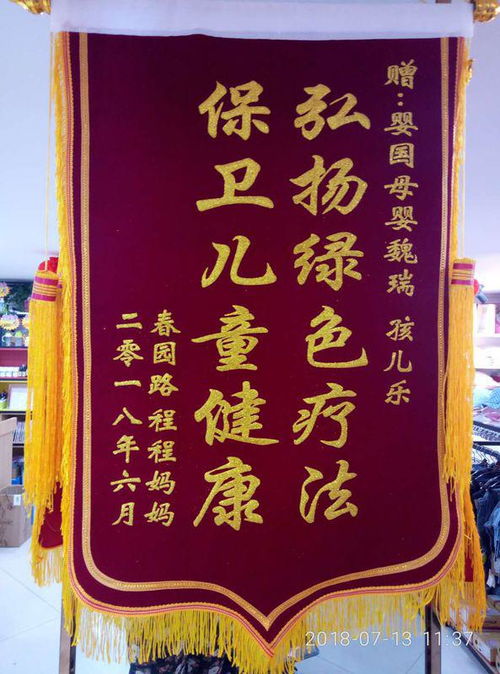 赠：婴国母婴魏瑞 孩儿乐
弘扬绿色疗法
保卫儿童健康
春园路程程妈妈
二零一八年六月
2018-07-13 11:37